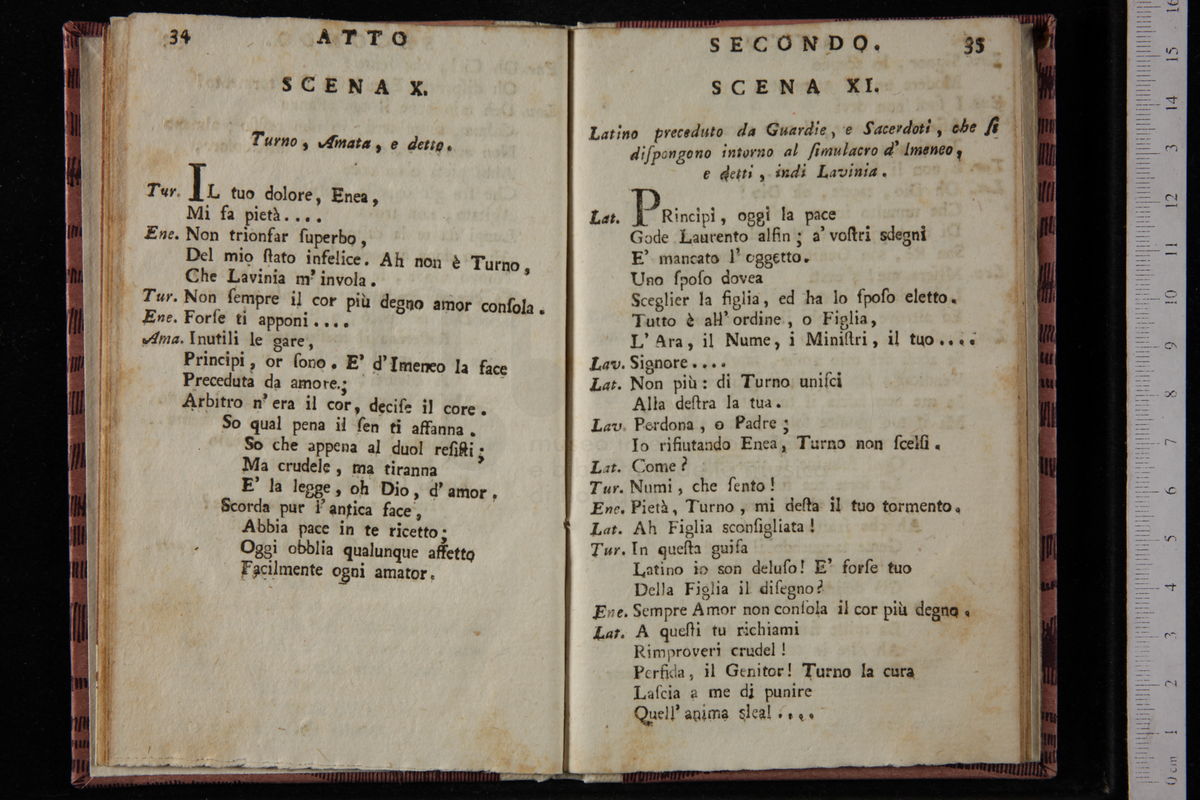 34 ATTO
SCENA X.
Turno, Amata, e detto.
Tur. IL tuo dolore, Enea,
Mi fa pietà....
Ene. Non trionfar ſuperbo,
Del mio ſtato infelice. Ah non è Turno,
Che Lavinia m'invola.
Tur. Non ſempre il cor più degno amor conſola.
Ene. Forſe ti apponi....
Ama. Inutili le gare,
Principi, or ſono. E' d'Imeneo la face
Preceduta da amore.;
Arbitro n'era il cor, deciſe il core.
So qual pena il ſen ti affanna.
So che appena al duol reſiſti;
Ma crudele, ma tiranna
E' la legge, oh Dio, d'amor.
Scorda pur l'antica face,
Abbia pace in te ricetto;
Oggi obblia qualunque affetto
Facilmente ogni amator.
SECONDO. 35
SCENA XI.
Latino preceduto da Guardie, e Sacerdoti, che ſi
diſpongono intorno al ſimulacro d'Imeneo,
e detti, indi Lavinia.
Lat. PRincipi, oggi la pace
Gode Laurento alfin; a' voſtri sdegni
E' mancato l'oggetto.
Uno ſpoſo dovea
Sceglier la figlia, ed ha lo ſpoſo eletto.
Tutto è all'ordine, o Figlia,
L'Ara, il Nume, i Miniſtri, il tuo....
Lav. Signore....
Lat. Non più: di Turno uniſci
Alla deſtra la tua.
Lav. Perdona, o Padre;
Io rifiutando Enea, Turno non ſcelſi.
Lat. Come?
Tur. Numi, che ſento!
Ene. Pietà, Turno, mi deſta il tuo tormento.
Lat. Ah Figlia sconſigliata!
Tur. In queſta guiſa
Latino io son deluſo! E' forſe tuo
Della Figlia il diſegno?
Ene. Sempre Amor non conſola il cor più degno.
Lat. A queſti tu richiami
Rimproveri crudel!
Perfida, il Genitor! Turno la cura
Laſcia a me di punire
Quell'anima sleal....